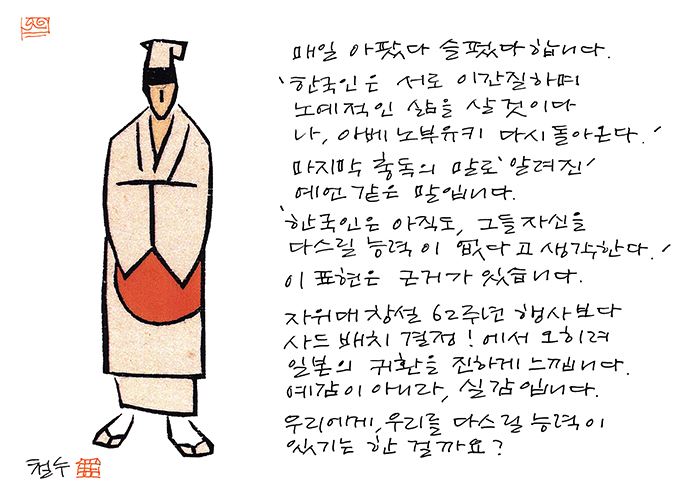 매일 아팠다 슬펐다 합니다.
'한국인은 서로 이간질하며
노예적인 삶을 살 것이다
나, 아베 노부유키 다시 돌아온다.'
마지막 총독의 말로 '알려진'
예언 같은 말입니다.
'한국인은 아직도, 그들 자신을
다스릴 능력이 없다고 생각한다.'
이 표현은 근거가 있습니다.
자위대 창설 62주년 행사보다
사드 배치 결정! 에서 오히려
일본의 귀환을 진하게 느낍니다.
예감이 아니라, 실감입니다.
우리에게, 우리를 다스릴 능력이
있기는 한 걸까요?
철수